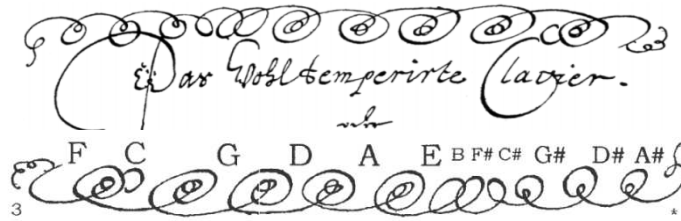 Das Wohltemperirte Clavier.
oder
F C G D A E B F# C# G# D# A#
3 *